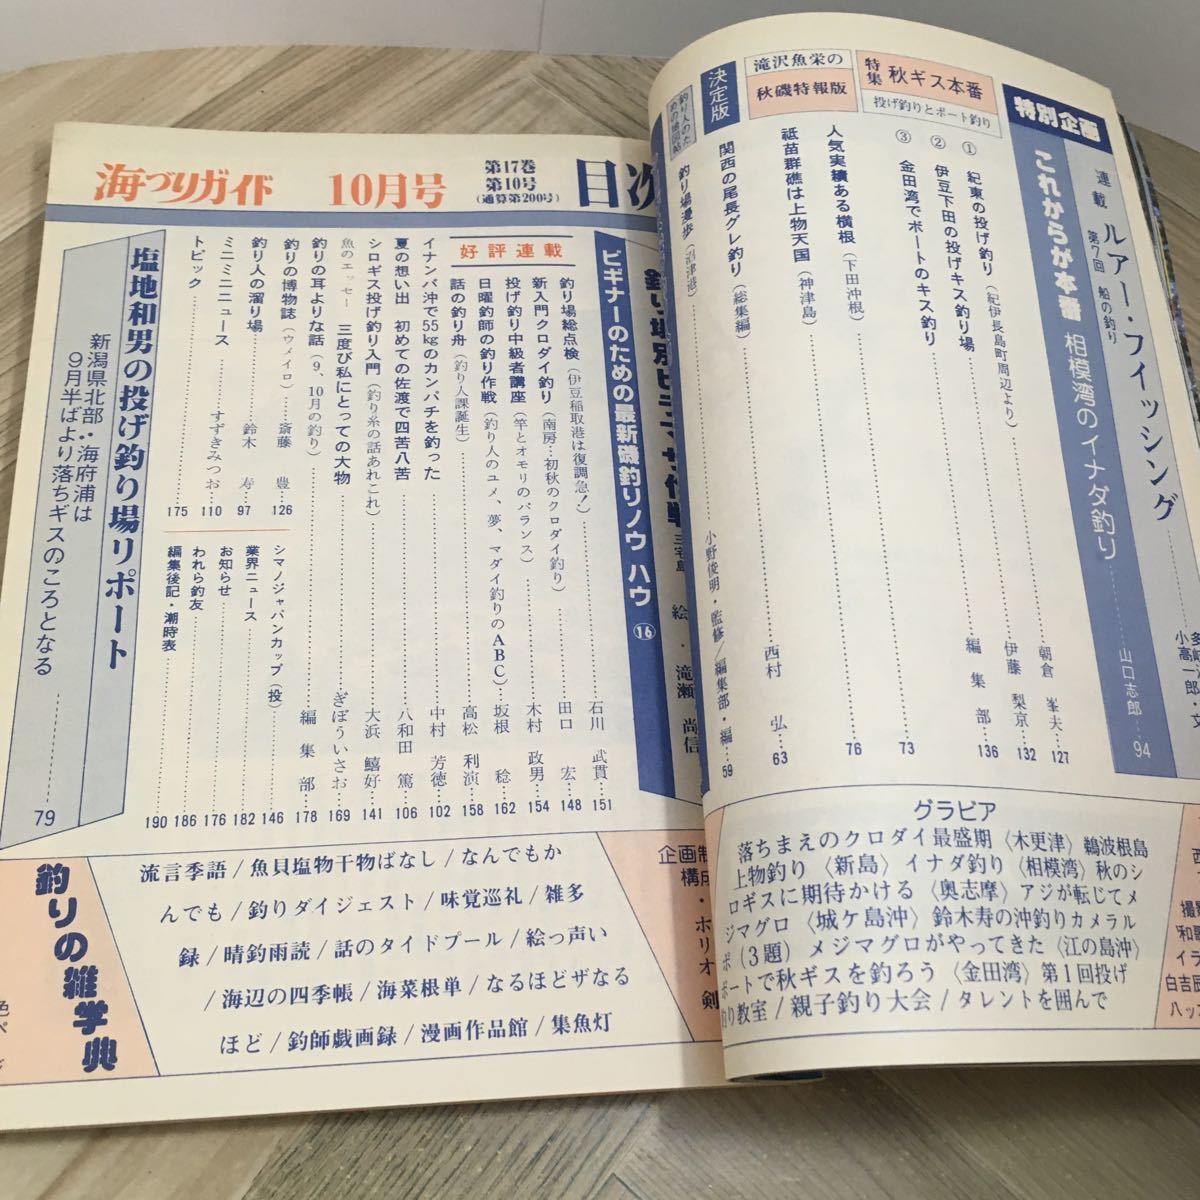 連載 ルアー・フィッシング
第7回 船の釣り
特別企画
これからが本番 相模湾のイナダ釣り……山口志郎……94
特集 秋ギス本番
投げ釣りとボート釣り
① 紀東の投げ釣り(紀伊長島町周辺より)……朝倉 峯夫…127
② 伊豆下田の投げキス釣り場……伊藤 梨京…132
③ 金田湾でボートのキス釣り……編集部…136
滝沢魚栄の
秋磯特報版
人気実績ある横根(下田沖根)……73
祗苗群礁は上物天国(神津島)……76
決定版
関西の尾長グレ釣り(総集編)……西村 弘…63
釣り人のための地図帖
釣り場漫歩(沼津港)……小野俊明・監修/編集部・編…59
グラビア
落ちまえのクロダイ最盛期〈木更津〉鵜波根島
上物釣り〈新島〉イナダ釣り〈相模湾〉秋のシ
ロギスに期待かける〈奥志摩〉アジが転じてメ
ジマグロ〈城ケ島沖〉鈴木寿の沖釣りカメラル
ポ(3題)メジマグロがやってきた〈江の島沖〉
ボートで秋ギスを釣ろう〈金田湾〉第1回投げ
釣り教室/親子釣り大会/タレントを囲んで
海づりガイド 10月号 第17巻 第10号 (通算第200号) 目次
ビギナーのための最新磯釣りノウハウ ⑯
三宅島 絵・滝瀬 尚信
好評連載
釣り場総点検(伊豆稲取港は復調急!)……石川 武貫…151
新入門クロダイ釣り(南房…初秋のクロダイ釣り)……田口 宏…148
投げ釣り中級者講座(竿とオモリのバランス)……木村 政男…154
日曜釣師の釣り作戦(釣り人のユメ、夢、マダイ釣りのABC)坂根 稔…162
話の釣り舟(釣り人課誕生)……高松 利演…158
イナンバ沖で55kgのカンパチを釣った……中村 芳徳…102
夏の想い出 初めての佐渡で四苦八苦……八和田 篤…106
シロギス投げ釣り入門(釣り糸の話あれこれ)……大浜 鱚好…141
魚のエッセー 三度び私にとっての大物……ぎぼういさお…169
釣りの耳よりな話(9、10月の釣り)……編集部…178
釣りの博物誌(ウメイロ)……斎藤 豊…126
釣り人の溜り場……鈴木 寿…97
ミニミニニュース……すずきみつお…110
トピック……175
シマノジャパンカップ(投)……146
業界ニュース……182
お知らせ……176
われら釣友……186
編集後記・潮時表……190
塩地和男の投げ釣り場リポート
新潟県北部:海府浦は
9月半ばより落ちギスのころとなる……79
釣りの雑学典
流言季語/魚貝塩物干物ばなし/なんでもか
んでも/釣りダイジェスト/味覚巡礼/雑多
録/晴釣雨読/話のタイドプール/絵っ声い
/海辺の四季帳/海菜根単/なるほどザなる
ほど/釣師戯画録/漫画作品館/集魚灯